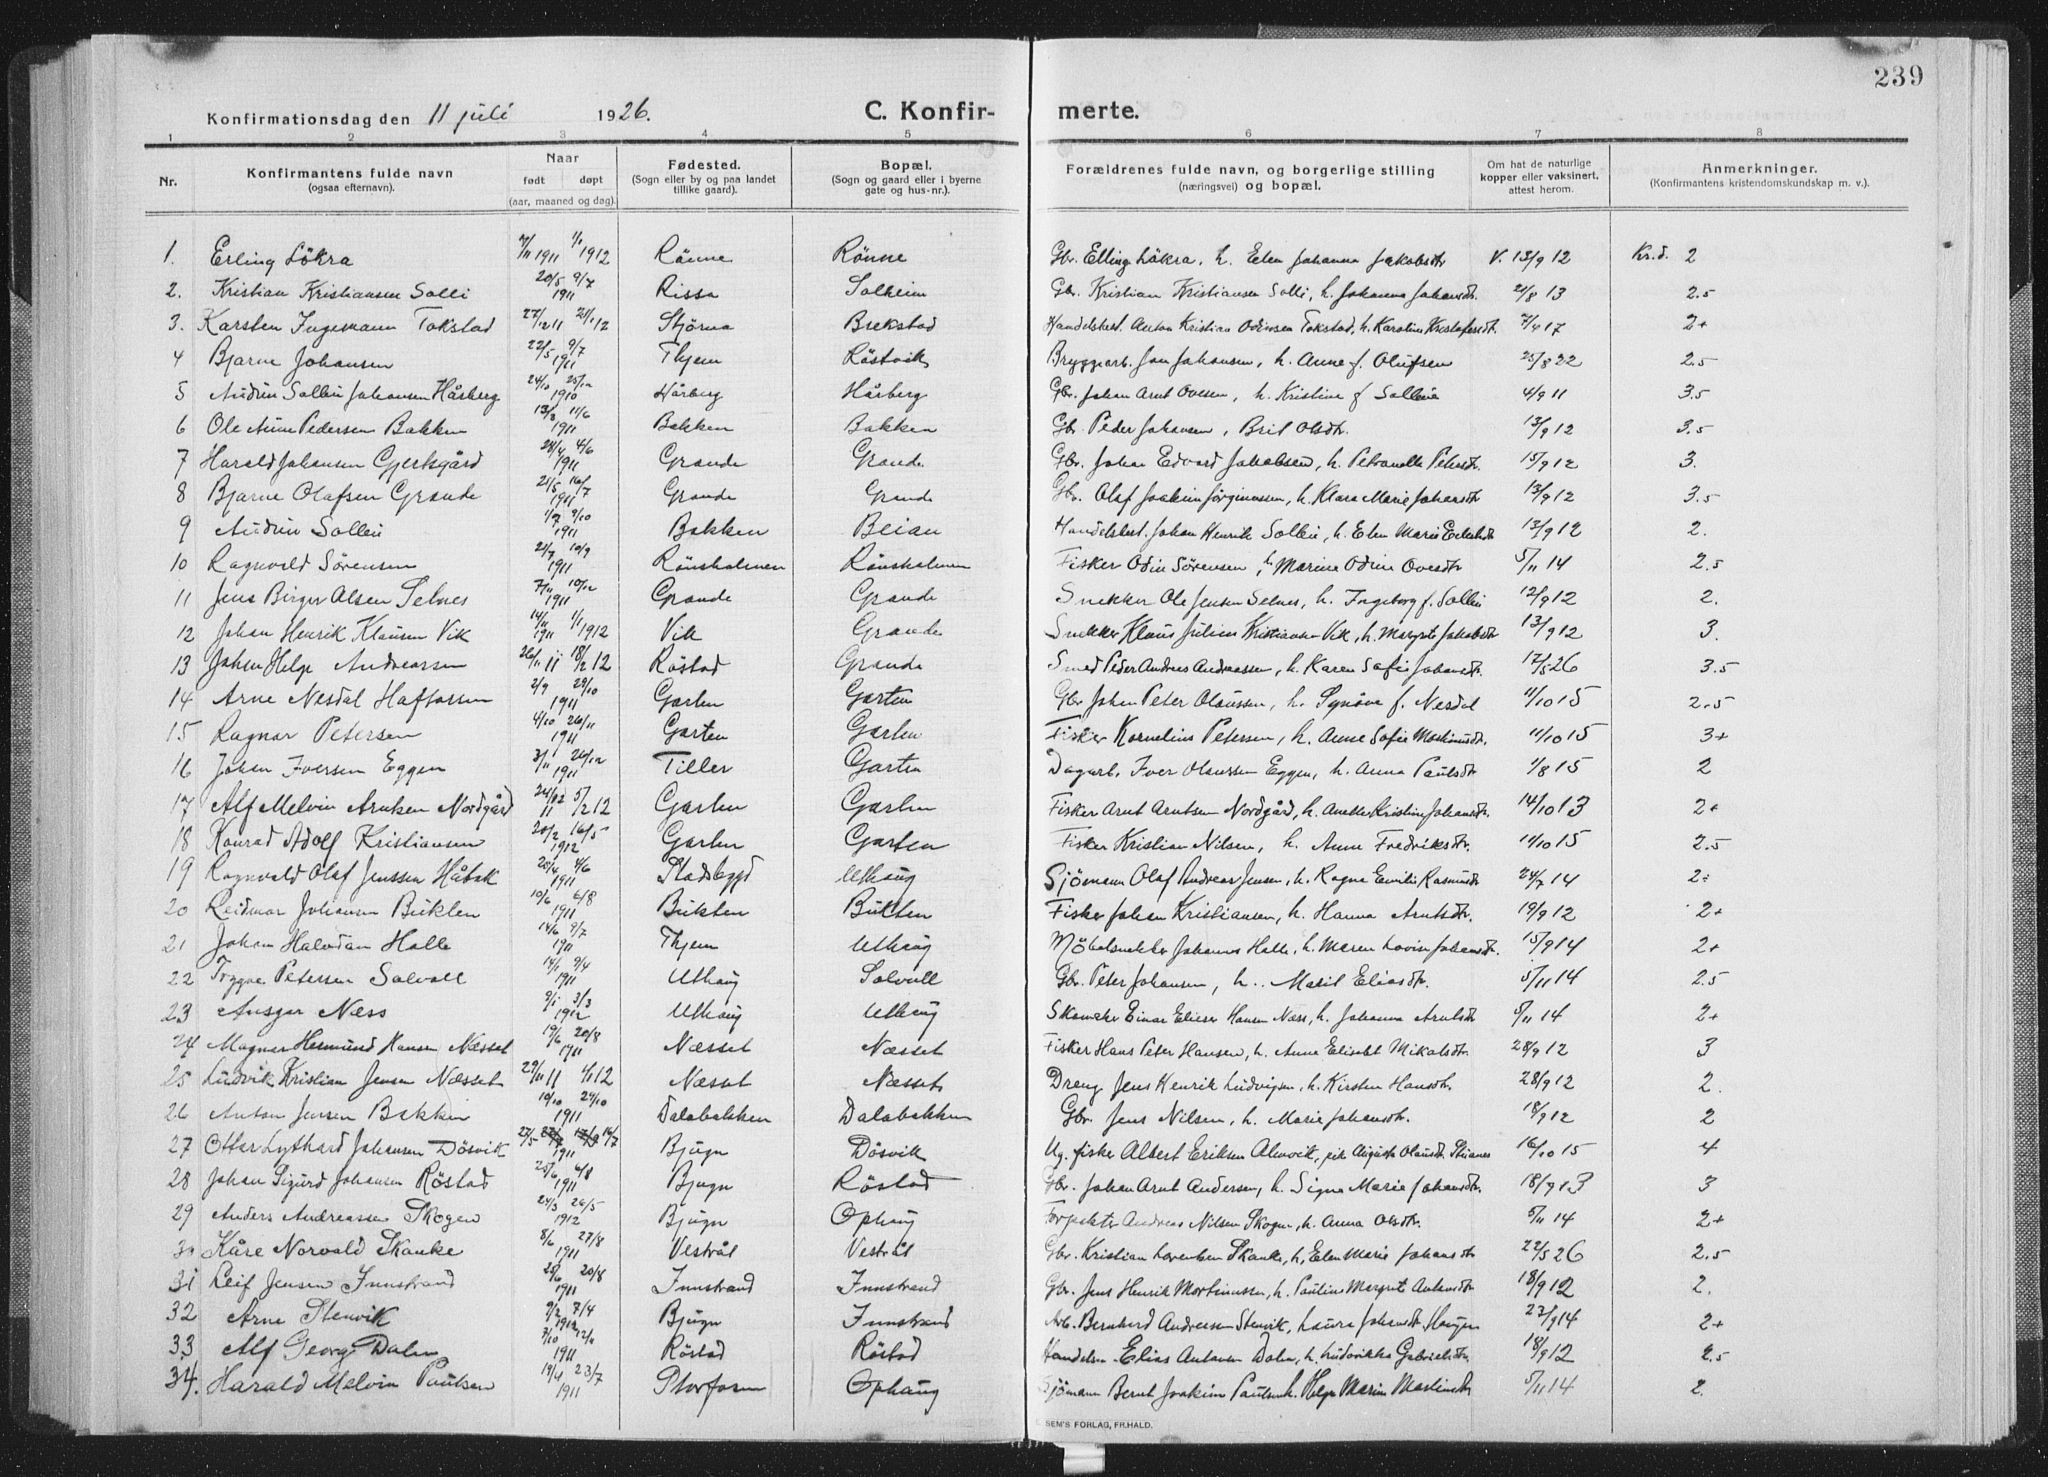 239
Konfirmationsdag den 11 juli 1926. C. Konfirmerte.
1 2 3 4 5 6 7 8
Nr. Konfirmantens fulde navn (ogsaa efternavn). Naar født døpt (aar, maaned og dag). Fødested. (Sogn eller by og paa landet tillike gaard). Bopæl. (Sogn og gaard eller i byerne gate og hus-nr.). Forældrenes fulde navn, og borgerlige stilling (næringsvei) og bopæl. Om hat de naturlige kopper eller vaksinert, attest herom. Anmerkninger. (Konfirmantens kristendomskundskap m. v.).
1. Erling Lökra 1911 1/1 1912 Rönne Rönne Gbr. Elling Lökra, h. Elen Johanna Jakobsdtr V. 13/9 12 Kr.d. 2
2. Kristian Kristiansen Solli 20/5 9/7 1911 Rissa Solheim Gbr. Kristian Kristiansen Solli, h. Johanna Johansdtr. 21/8 13 2.5
3. Karsten Ingemann Tokstad 27/12 11 21/1 12 Stjörna Brekstad Handelsbest. Anton Kristian Odinsen Tokstad, h. Karoline Kristofersdtr. 7/4 17 2+
4 Bjarne Johansen 22/5 9/7 1911 Thjem Röstvik Bryggearb. Jon Johansen, h. Anne f. Olufsen 25/8 22 2.5
5 Audun Sollein Johansen Hårberg 24/10 25/12 1910 Hårberg Hårberg Gbr. Johan Arnt Ovesen, h. Kristine f Sollein 4/9 11 3.5
6 Ole Arne Pedersen Bakken 13/3 11/6 1911 Bakken Bakken Gbr. Peder Johansen, Brit Olsdtr. 13/9 12 3.5
7 Harald Johansen Gjerksgård 28/4 4/6 1911 Grande Grande Gbr. Johan Edvard Jakobsen, h. Petranelle Petersdtr. 15/9 12 3.
8 Bjarne Olafsen Grande 21/5 16/7 1911 Grande Grande Gbr. Olaf Joakim Jörginusen, h. Klara Marie Johansdtr 13/9 12 3.5
9 Audun Sollein 1/7 9/10 1911 Bakken Beian Handelsbest. Johan Henrik Sollein, h. Elen Marie 13/9 12 2.
10 Ragnvald Sörensen 21/7 10/9 1911 Rönsholmen Rönsholmen Fisker Odin Sörensen, h. Marine Odine Ovesdtr 5/11 14 2.5
11 Jens Birger Olsen Selnes 7/11 10/12 1911 Grande Grande Snekker Ole Jensen Selnes, h. Ingeborg f. Sollein 12/9 12 2.
12 Johan Henrik Klausen Vik 14/11 1911 1/1 1912 Vik Grande Snekker Klaus Julius Kristiansen Vik, h. Margrete Jakobsdtr 13/9 12 3.
13 Johan Helge Andreassen 26/11 11 18/2 12 Röstad Grande Smed Peder Andreas Andreassen, h. Karen Sofie Johansdtr. 12/5 26 3.5
14 Arne Nesdal Haftorsen 2/9 29/10 1911 Garten Garten Gbr Johan Peter Olaussen, h. Synöve f. Nesdal 11/10 15 2.5
15 Ragnar Petersen 4/10 26/11 1911 Garten Garten Fisker Kornelius Petersen, h. Anne Sofie Martinusdtr. 11/10 15 3+
16 Johan Iversen Eggen 3/11 26/12 1911 Tiller Garten Dagarb. Iver Olaussen Eggen, h. Anna Paulsdtr 1/8 15 2
17 Alf Melvin Arntsen Nordgård 24/12 11 5/2 12 Garten Garten Fisker Arnt Arntsen Nordgård, h. Anette Kristine Johansdtr. 14/10 13 2+
18 Konrad Adolf Kristiansen 20/2 16/5 1912 Garten Garten Fisker Kristian Nilsen, h. Anne Fredriksdtr. 11/10 15 2.5
19 Ragnvald Olaf Jenssen Håbak 25/4 4/6 1911 Stadsbygd Uthaug Sjömann Olaf Andreas Jensen, h. Ragna Emilie Rasmusdtr 24/7 14 2÷
20 Reidmar Johansen Bukten 10/6 6/8 1911 Bukten Bukten Fisker Johan Kristiansen, h. Hanna Arntsdtr. 19/9 12 2+
21 Johan Halvdan Holle 14/6 9/7 1911 Thjem Uthaug Möbelsnekker Johannes Holle, h. Maren Lovise Johansdtr. 15/9 14 2+
22 Trygve Petersen Solvoll 14/1 9/4 1911 Uthaug Solvoll Gbr. Peter Johansen, h. Marit Eliasdtr. 5/11 14 2.5
23 Ansgar Næss 9/1 3/3 1912 Uthaug Uthaug Skomaker Einar Elieser Hansen Næss, h. Johanna Arntsdtr 5/11 14 2+
24 Magnar Hermund Hansen Næsset 19/6 20/8 1911 Næsset Næsset Fisker Hans Peter Hansen, h. Anne Elisabet Mikalsdtr. 28/9 12 3
25 Ludvik Kristian Jensen Næsset 29/11 11 4/1 12 Næsset Næsset Dreng Jens Henrik Ludvigsen, h. Kirsten Hansdtr. 28/9 12 2.
26 Anton Jensen Bakken 10/10 29/10 1911 Dalabakken Dalabakken Gbr. Jens Nilsen, h. Marie Johansdtr. 18/9 12 2
27 Ottar Lythard Johansen Dösvik 27/5 16/7 1911 Bjugn Dösvik Ug. fisker Albert Eriksen Alnvik, pike Augusta Olausdtr. 16/10 15 4
28 Johan Sigurd Johansen Röstad 25/6 6/8 1911 Bjugn Röstad Gbr. Johan Arnt Andersen, h. Signe Marie Johansdtr. 18/9 13 3
29 Anders Andreassen Skogen 24/3 26/5 1912 Bjugn Ophaug Forpakter Andreas Nilsen Skogen, h. Anna Olsdtr. 5/11 14 2+
30 Kåre Norvald Skanke 8/6 27/8 1911 Vestråt Vestråt Gbr. Kristian Lorentsen Skanke, h. Elen Marie Johansdtr 22/5 26 2.5
31 Leif Jensen Innstrand 25/6 20/8 1911 Innstrand Innstrand Gbr. Jens Henrik Martinussen, h. Pauline Margret Antonsdtr. 18/9 12 2.
32 Arne Stenvik 9/2 7/4 1912 Bjugn Innstrand Arb. Bernhard Andreasen Stenvik, Laura Johansdtr. Haugen 23/9 14 2+
33 Alf Georg Dalen 7/10 12/11 1911 Röstad Röstad Handelsm. Elias Antonsen Dalen, h. Ludvikka Gabrielsdtr. 18/9 12 2.5
34. Harald Melvin Paulsen 19/4 23/7 1911 Storfosen Ophaug Sjömann Bernt Joakim Paulsen h. Helga Marine Martinsdtr 5/11 14 2.
SEM'S FORLAG, FR.HALD.